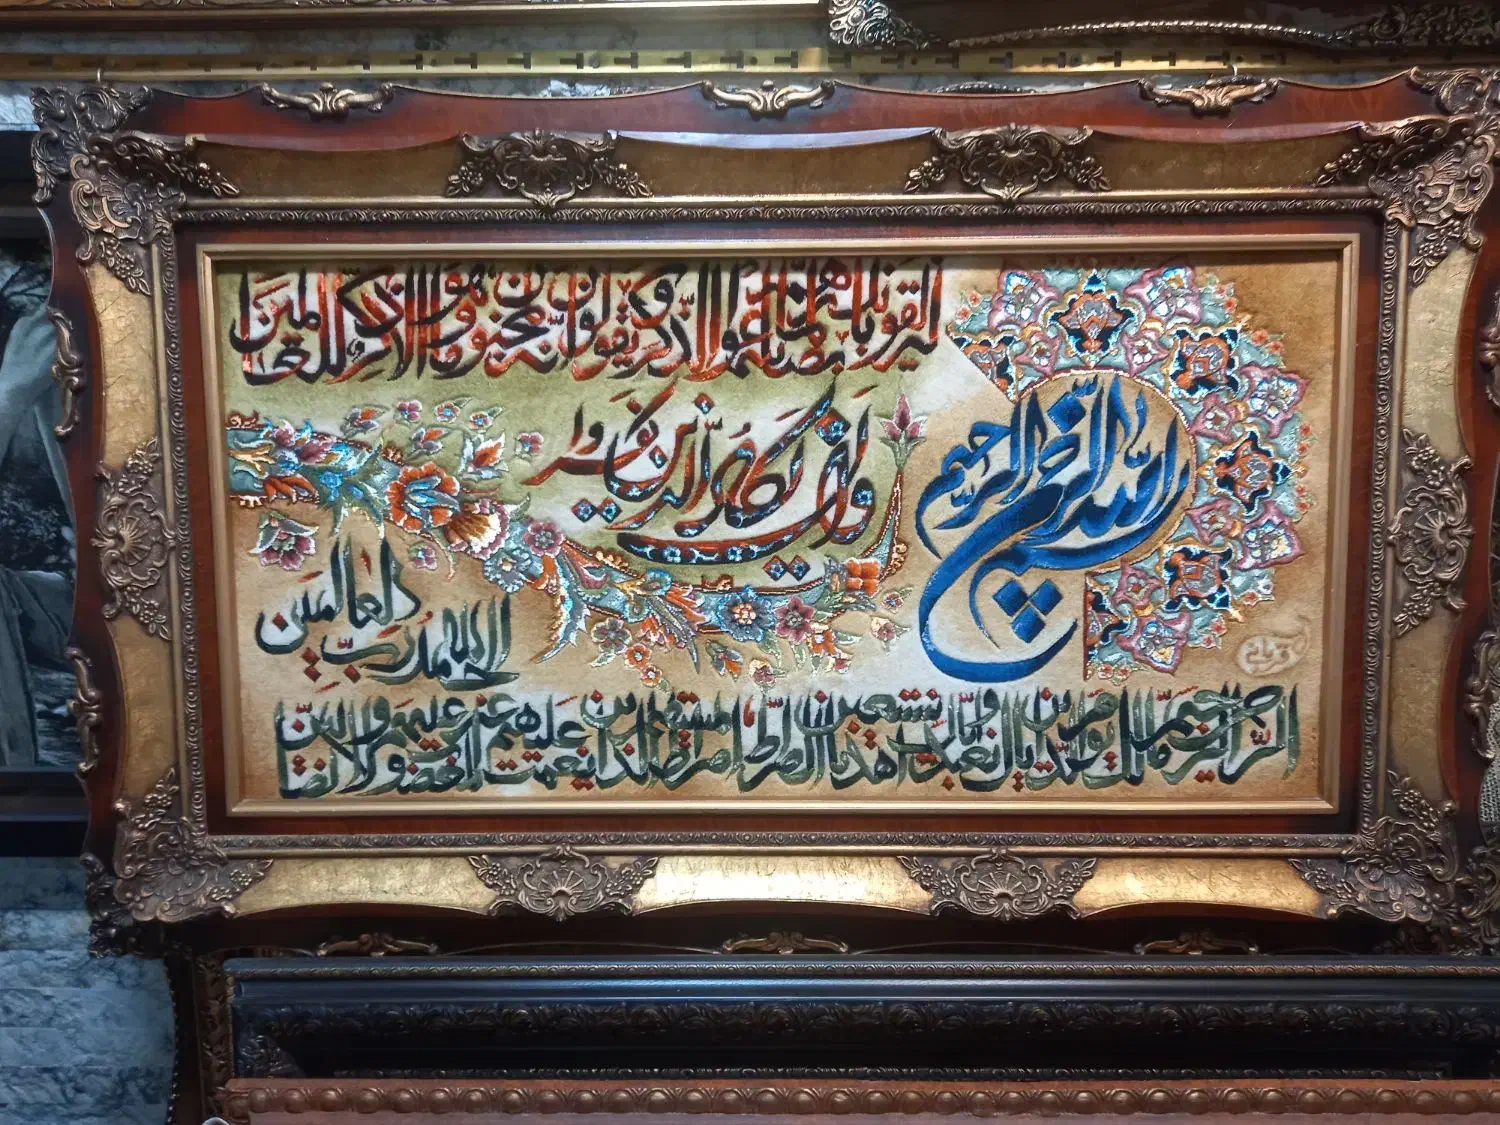 بسم الله الرحمن الرحيم
وان يكاد الذين كفروا
ليزلقونك بابصارهم لما سمعوا الذكر ويقولون انه لمجنون وما هو الا ذكر للعالمين
الحمد لله رب العالمين
الرحمن الرحيم مالك يوم الدين اياك نعبد واياك نستعين اهدنا الصراط المستقيم صراط الذين انعمت عليهم غير المغضوب عليهم ولا الضالين